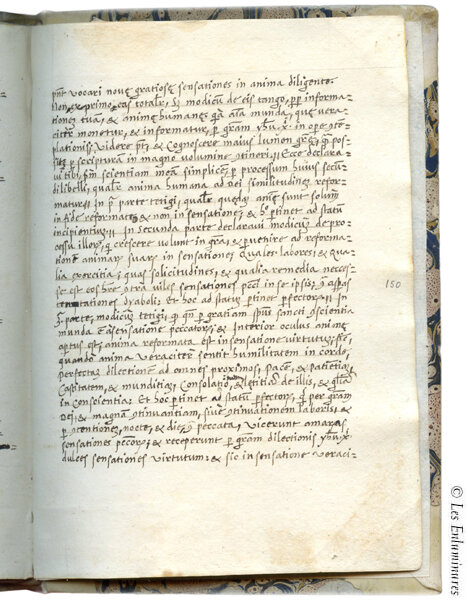 pn̄t vocari novę gratiosę sensationes in anima diligente.
Non exprimo eas totalr̄, sꝫ modicū de eis tango, p̱p informa-
tionē tuā, & animę humanę; q̄a aīa munda, quę vera-
citer monetur, & informatur, p gram yhū x̄ in opē ꝯtē-
plationis: videre pt̄, & cognoscere maius lumen
p scripturā in magno volumine Ecce declara-
vi tibi, scientiam meā simplicē, p processum huius secū-
di libelli, qualr̄ anima humana ad dei similitudinē refor-
matur. In pᵃ parte tetigi, qualr̄ quędā animę sunt solum
in fide reformatę, & non in sensatione; & hoc ptinet ad statū
incipientiū. In secunda parte declaravi modicum de pro-
cessu illorꝫ, q̄ crescere volunt in gr̄a, & pvenire ad reforma-
tionē animarꝫ suarꝫ in sensatione: Quales labores, & qua-
lia exercitia; quas solicitudines, & qualia remedia necess-
se est eos hr̄e ꝯtra viles sensationes pcc̄i in se ipsis; & asꝑas
tentationes dyaboli. Et hoc ad statūs ptinet pfectorꝫ. In
3ᵃ parte, modicū tetigi, q̄ qn̄ p gratiam sp̄us sancti ꝯscientia
munda ē a sensatione peccatorꝫ, & interior oculus animę
aptus est; anima reformata est in sensatione virtutū:
quando anima veraciter sentit humilitatem in corde,
perfectā dilectionē ad omnes proximos, pacē, & patiētiā,
castitatem, & munditiā; consolatōnē, & letitiā de illis, & gl̄iā
in conscientia. Et hoc ptinet ad statū pfectorꝫ, q̄ per gram
dei, & magnā ꝯtinuantiam, sive ꝯtinuationem laboris, &
p ꝯtentiones, nocte, & die, ꝯ peccata, vicerunt amaras
sensationes pccorꝫ; & receperunt p gram dilectionis yhū x̄
dulces sensationes virtutum: & sic in sensatione veraci-
150
© Les Enluminures